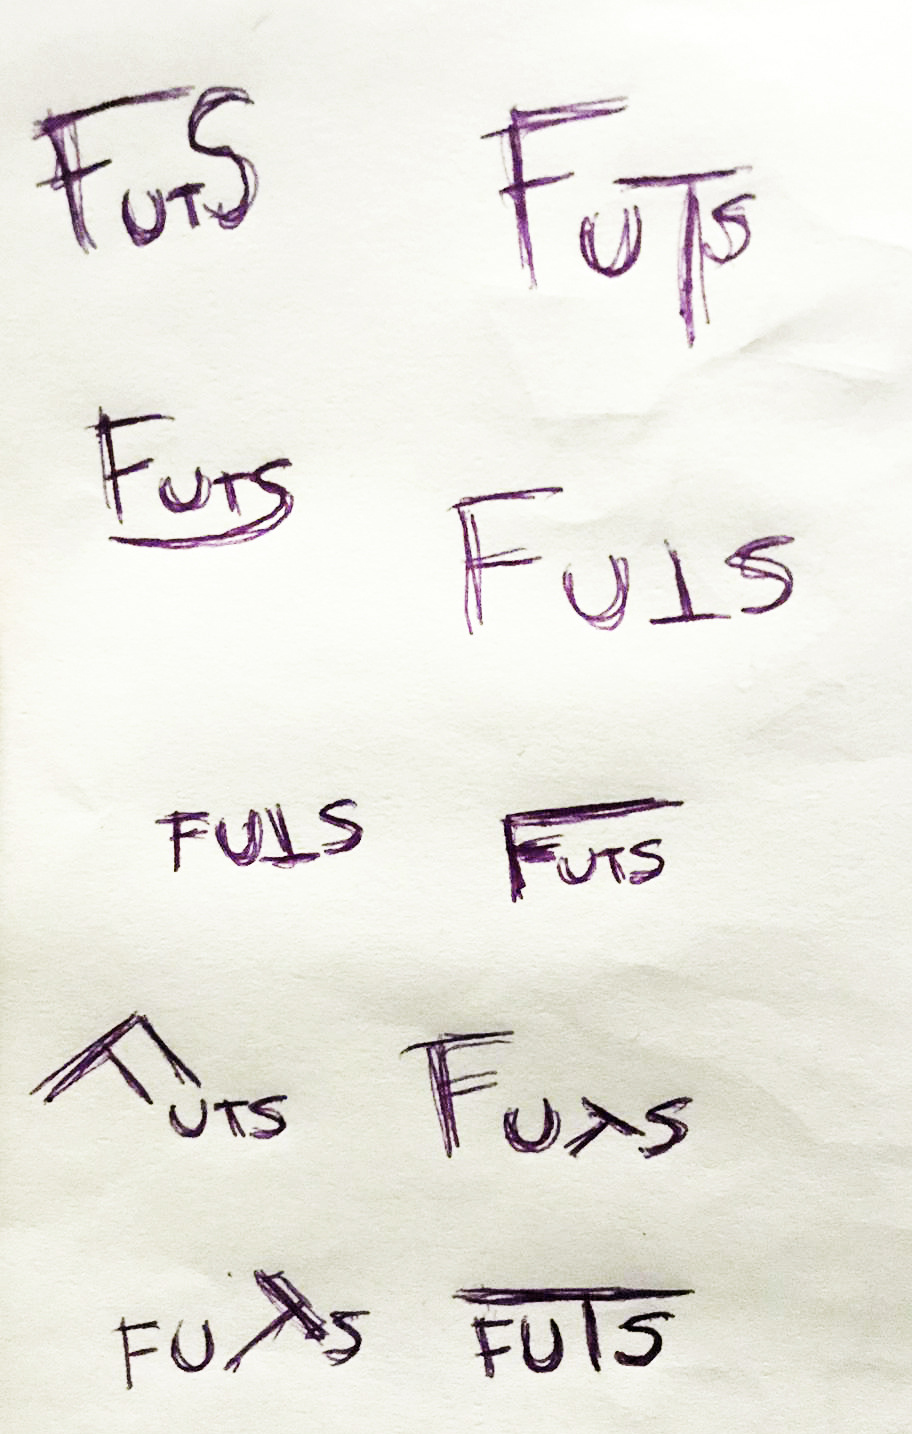 FUTS
FUTS
FUTS
FU⊥S
FU⊥S
FUTS
FUTS
FU⅄S
FU⅄S
FUTS